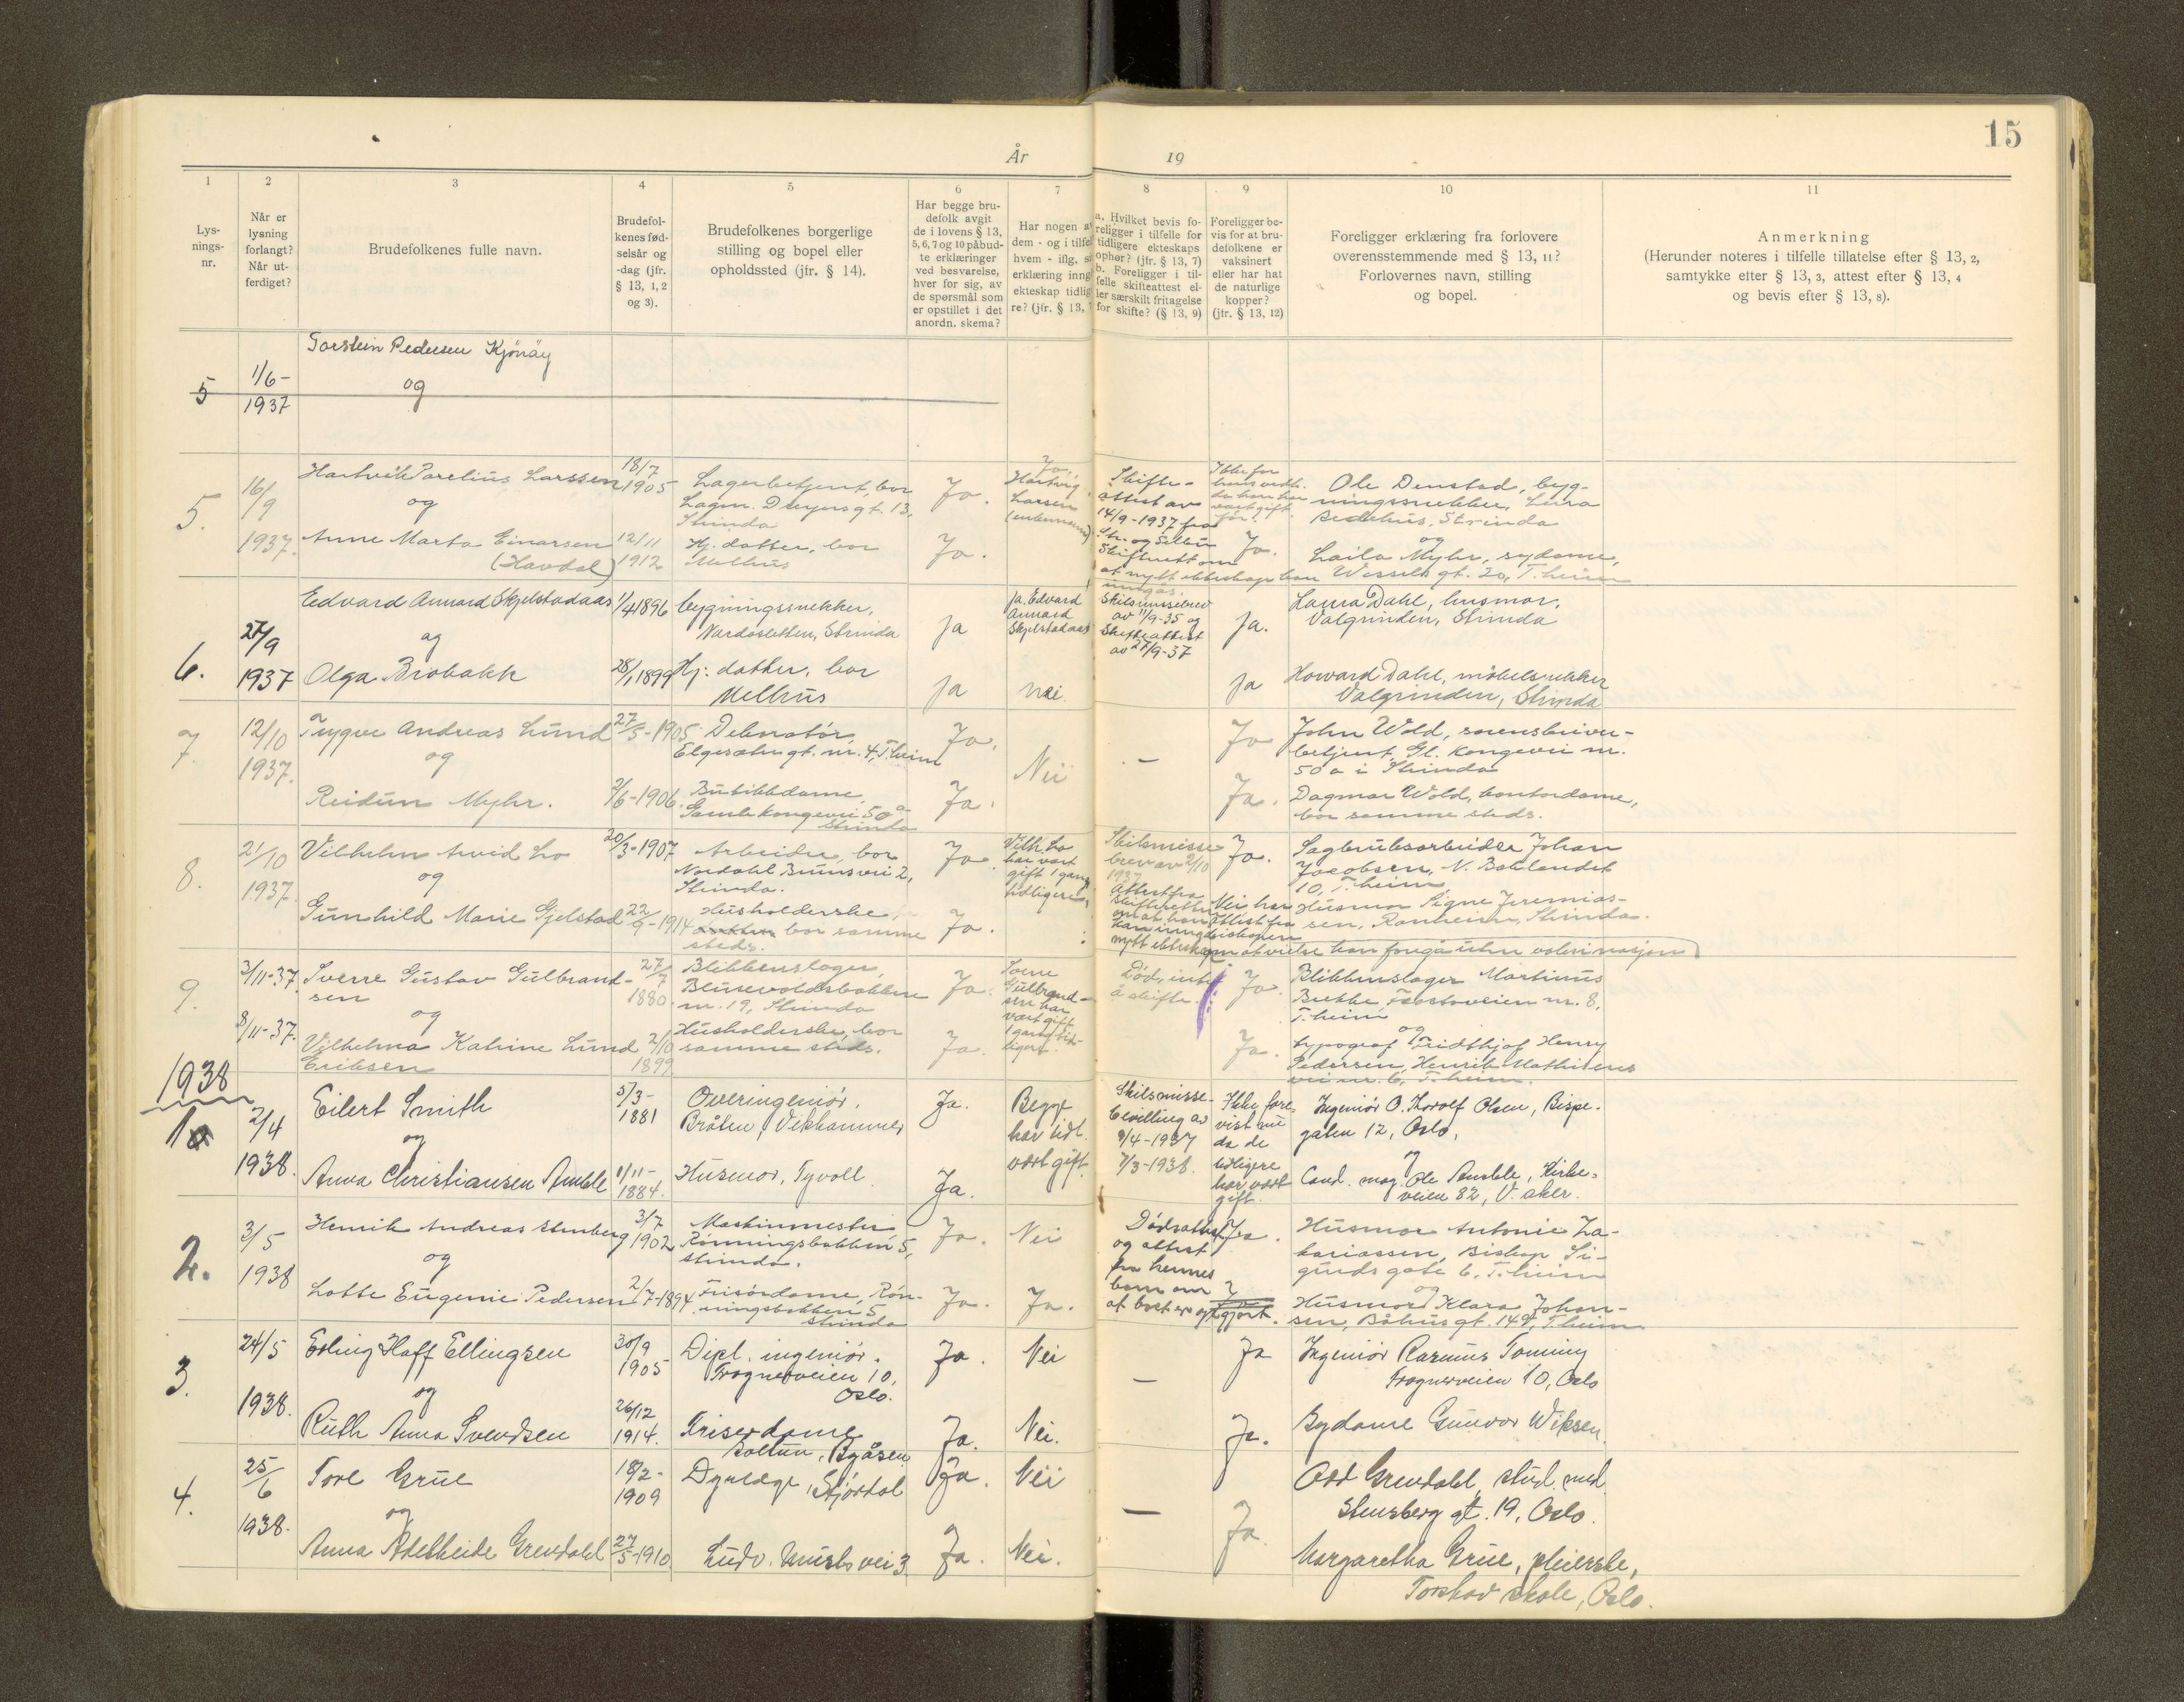 15
År 19
1 2 3 4 5 6 7 8 9 10 11
Lys-
nings-
nr.
Når er
lysning
forlangt?
Når ut-
ferdiget?
Brudefolkenes fulle navn.
Brudefol-
kenes fød-
selsår og
-dag (jfr.
§ 13, 1, 2
og 3).
Brudefolkenes borgerlige
stilling og bopel eller
opholdssted (jfr. § 14).
Har begge bru-
defolk avgit
de i lovens § 13,
5, 6, 7 og 10 påbud-
te erklæringer
ved besvarelse,
hver for sig, av
de spørsmål som
er opstillet i det
anordn. skema?
Har nogen av
dem - og i tilfe
hvem - iflg. s
erklæring inng
ekteskap tidlig
re? (jfr. § 13,
a. Hvilket bevis fo-
religger i tilfelle for
tidligere ekteskaps
ophør? (jfr. § 13, 7)
b. Foreligger i til-
felle skifteattest el-
ler særskilt fritagelse
for skifte? (§ 13, 9)
Foreligger be-
vis for at bru-
defolkene er
vaksinert
eller har hat
de naturlige
kopper?
(jfr. § 13, 12)
Foreligger erklæring fra forlovere
overensstemmende med § 13, 11?
Forlovernes navn, stilling
og bopel.
Anmerkning
(Herunder noteres i tilfelle tillatelse efter § 13, 2,
samtykke efter § 13, 3, attest efter § 13, 4
og bevis efter § 13, 8).
5
1/6-
1937
Torstein Pedersen
og
5.
16/9
1937.
Hartvik Parelius Larssen
og
Anne Marta Einarsen
(Havdal)
18/7
1905
12/11
1912
Lagerbetjent, bor
Lagm. Dreyersgt. 13,
Strinda
Hj. datter, bor
Melhus
Ja.
Ja.
Ja,
Hartvig
Larsen
Skifte-
attest av
14/9-1937 fra
Str. og Selbu
Skifterett om
at nytt ekteskap kan
inngås.
Ikke for
da han har
vært gift
før.
Ja.
Ole Denstad, byg-
ningssnekker, Lura
Bedehus, Strinda
og
Laila Myhr, sydame,
Wessels gt. 20, T.heim
6.
27/9
1937
Edvard Annard Skjelstadaas
og
Olga Brobakk
1/4 1896
28/1 1899
bygningssnekker,
Nardosletten, Strinda
Hj. datter, bor
Melhus
Ja
ja
Ja, Edvard
Annard
Skjelstadaas
nei
Skilsmissebrev
av 11/9-35 og
Skifteattest
av 27/9-37
Ja.
ja
Laura Dahl, husmor,
Valgrinden, Strinda
Howard Dahl, møbelsnekker
Valgrinden, Strinda
7.
12/10
1937.
Trygve Andreas Lund
og
Reidun Myhr.
27/5-1905
2/6-1906.
Dekoratør,
Elgesæter gt. nr. 4, T.heim
Butikkdame,
Gamle kongevei 50 a
Strinda
Ja.
Ja.
Nei
-
Ja
Ja.
John Wold, sorenskriver-
betjent, Gl. Kongevei nr.
50 a i Strinda
Dagmar Wold, kontordame,
bor samme steds.
8.
21/10
1937.
Vilhelm Arvid Lo
og
Gunhild Marie Gjelstad
20/3-1907
22/9-1914
Arbeider, bor
Nordahl Bruns vei 2,
Strinda.
Husholderske,
bor samme
steds.
Ja.
Ja.
Vilh. Lo
har vært
gift 1 gang
tidligere.
Skilsmisse
brev av 2/10
1937
Attest fra
skifteretten
om at han
kan inngå
nytt ekteskap
Ja.
Nei, har
attest fra
bispen
om at vielse kan foregå uten vaksinasjon
Sagbruksarbeider Johan
Jacobsen, N. Baklandet
10, T.heim,
Husmor Signe Jeremias-
sen, Ranheim, Strinda.
9.
3/11-37.
8/11-37.
Sverre Gustav Gulbrand-
sen
og
Vilhelma Katrine Lund
Eriksen
27/7
1880.
2/10
1899.
Blikkenslager,
Blusevoldsbakken
nr. 19, Strinda
Husholderske, bor
samme steds.
Ja.
Ja.
Sverre
Gulbrand-
sen har
vært gift
1 gang tid-
ligere.
Død, intet
å skifte.
Ja.
Ja.
Blikkenslager Martinus
Bukke, Frostaveien nr. 8,
T.heim
og
typograf Fridthjof Henry
Pedersen, Henrik Mathisens
vei nr. 6, T.heim.
1938
1
2/4
1938.
Eilert Smith
og
Anna Christiansen Amble
5/3-
1881
1/11-
1884.
Overingeniør,
Bråten, Vikhammer
Husmor, Tyvoll
Ja.
Ja.
Begge
har tidl.
vært gift.
Skilsmisse-
bevilling av
9/4-1937
7/3-1938.
Ikke fore-
vist nu
da de
tidligere
har vært
gift.
Ingeniør O. Thorolf Olsen, Bispe-
gaten 12, Oslo,
og
Cand. mag. Ole Amble, Kirke-
veien 82, V. aker.
2.
3/5
1938
Henrik Andreas Stenberg
og
Lotte Eugenie Pedersen
3/7
1902
2/7-1894
Maskinmester
Rønningsbakken 5,
Strinda.
Frisørdame, Røn-
ningsbakken 5,
Strinda
Ja.
Ja.
Nei
Ja.
Dødsattest
og attest
fra hennes
barn om
at boet er opgjort.
Ja.
Husmor Antonie Za-
kariassen, Biskop Si-
gurds gate 6, T.heim
og
Husmor Klara Johan-
sen, Båhus gt. 14, T.heim
3.
24/5
1938.
Erling Hoff Ellingsen
og
Ruth Anna Svendsen
30/9
1905
26/12
1914.
Dipl. ingeniør.
Frognerveien 10,
Oslo.
Friserdame
Soltun, Byåsen
Ja.
Ja.
Nei
Nei.
-
Ja
Ja.
Ingeniør Rasmus Tønning
Frognerveien 10, Oslo
Sydame Gunvor Wiksen
4.
25/6
1938.
Tore Grue
og
Anna Adelheide Grendahl
18/2-
1909
27/5-1910
Dyrlæge, Stjørdal
Ludv. Musts vei 3
Ja.
Ja.
Nei
Nei.
-
Ja.
Odd Grendahl, stud. med.
Stensberg gt. 19, Oslo.
Margaretha Grue, pleierske,
Torshov skole, Oslo.